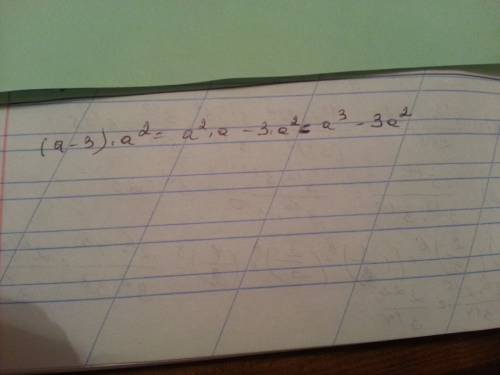 (a-3)·a² = a²·a - 3·a² = a³ - 3a²